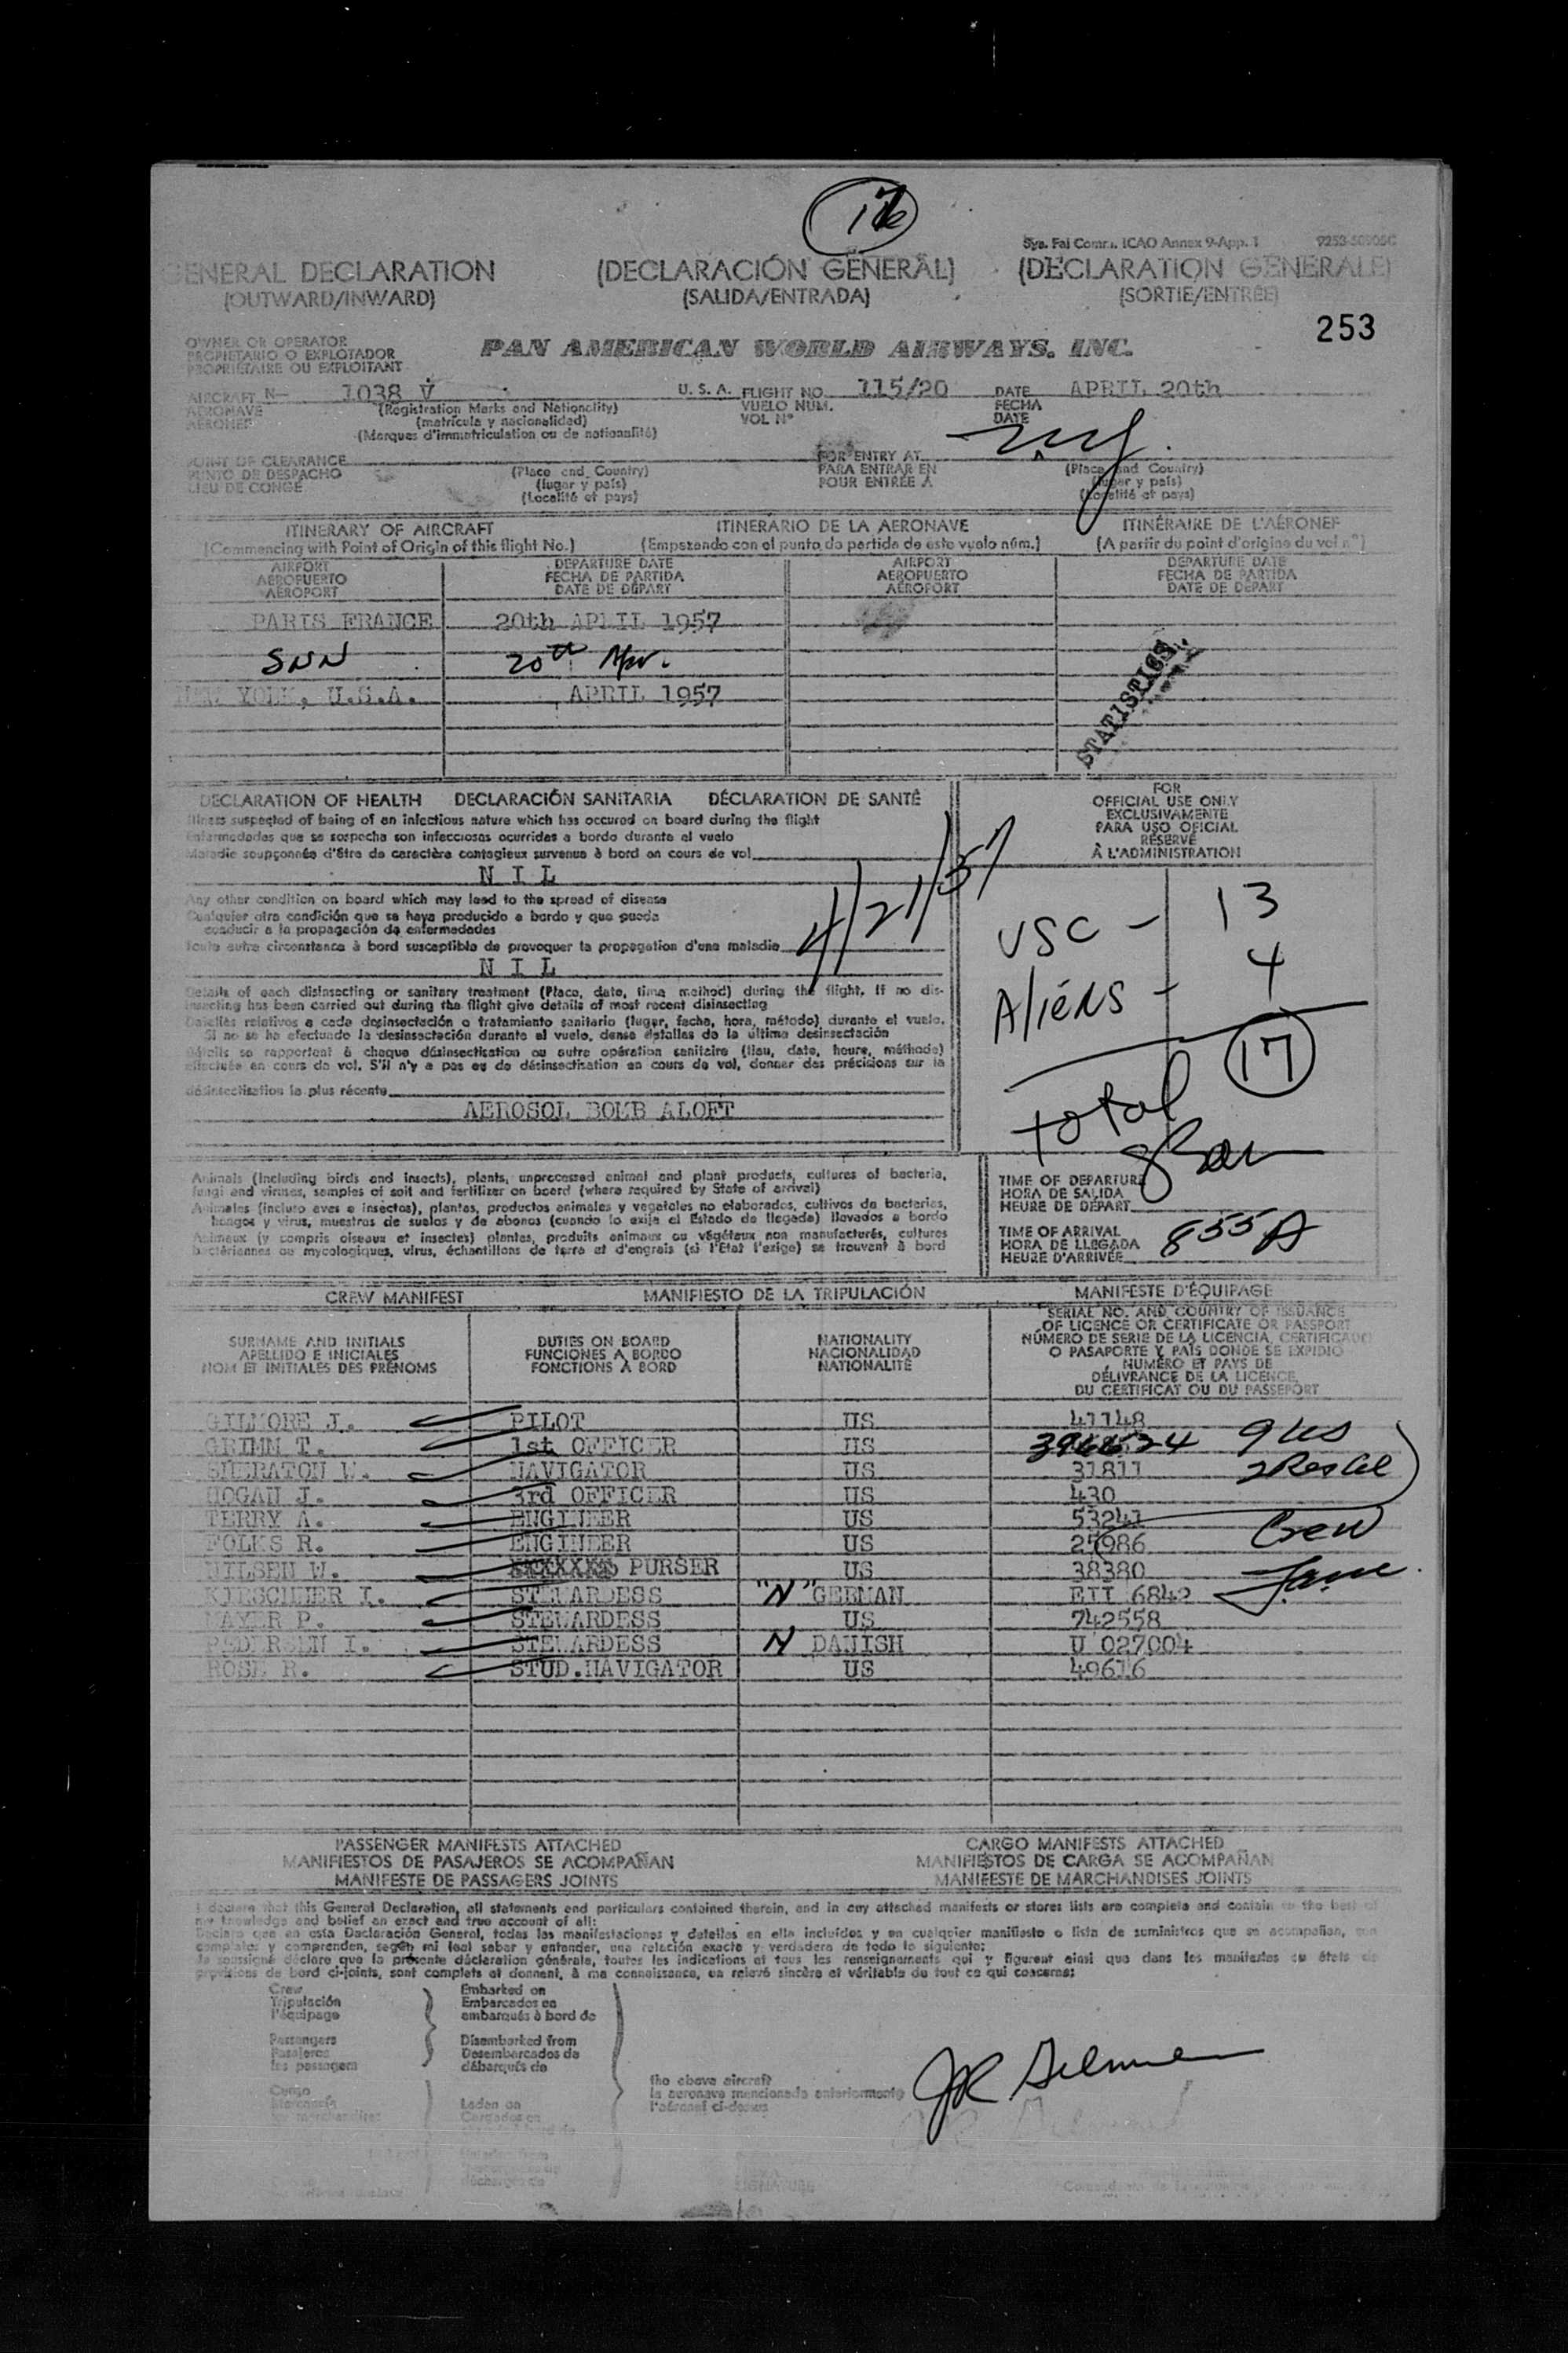 Sys. Fal Comm. ICAO Annex 9-App. 1
GENERAL DECLARATION (DECLARACIÓN GENERAL) (DÉCLARATION GÉNÉRALE)
(OUTWARD/INWARD) (SALIDA/ENTRADA) (SORTIE/ENTRÉE)
253
OWNER OR OPERATOR
PROPIETARIO O EXPLOTADOR
PROPRIÉTAIRE OU EXPLOITANT
PAN AMERICAN WORLD AIRWAYS, INC.
AIRCRAFT N— 1038 V U. S. A. FLIGHT NO. 115/20 DATE APRIL 20th
AERONAVE (Registration Marks and Nationality) VUELO NUM. FECHA
AÉRONEF (matrícula y nacionalidad) VOL N° DATE
(Marques d'immatriculation ou de nationalité)
POINT OF CLEARANCE FOR ENTRY AT
PUNTO DE DESPACHO (Place and Country) PARA ENTRAR EN (Place and Country)
LIEU DE CONGÉ (lugar y país) POUR ENTRÉE À (lugar y país)
(Localité et pays) (Localité et pays)
ITINERARY OF AIRCRAFT ITINERARIO DE LA AERONAVE ITINÉRAIRE DE L'AÉRONEF
(Commencing with Point of Origin of this flight No.) (Empezando con el punto de partida de este vuelo núm.) (A partir du point d'origine du vol n°)
AIRPORT DEPARTURE DATE AIRPORT DEPARTURE DATE
AEROPUERTO FECHA DE PARTIDA AEROPUERTO FECHA DE PARTIDA
AÉROPORT DATE DE DÉPART AÉROPORT DATE DE DÉPART
PARIS FRANCE 20th APRIL 1957
SNN 20th Apr.
NEW YORK, U.S.A. APRIL 1957
STATISTICS
DECLARATION OF HEALTH DECLARACIÓN SANITARIA DÉCLARATION DE SANTÉ
Illness suspected of being of an infectious nature which has occured on board during the flight
Enfermedades que se sospecha son infecciosas ocurridas a bordo durante el vuelo
Maladie soupçonnée d'être de caractère contagieux survenue à bord en cours de vol
N I L
Any other condition on board which may lead to the spread of disease
Cualquier otra condición que se haya producido a bordo y que pueda
conducir a la propagación de enfermedades
Toute autre circonstance à bord susceptible de provoquer la propagation d'une maladie
N I L
4/21/57
Details of each disinsecting or sanitary treatment (Place, date, time method) during the flight. If no dis-
insecting has been carried out during the flight give details of most recent disinsecting
Detalles relativos a cada desinsectación o tratamiento sanitario (lugar, fecha, hora, método) durante el vuelo.
Si no se ha efectuado la desinsectación durante el vuelo, dense detalles de la última desinsectación
Détails se rapportant à chaque désinsectisation ou autre opération sanitaire (lieu, date, heure, méthode)
effectuée en cours de vol. S'il n'y a pas eu de désinsectisation en cours de vol, donner des précisions sur la
désinsectisation la plus récente
AEROSOL BOMB ALOFT
FOR
OFFICIAL USE ONLY
EXCLUSIVAMENTE
PARA USO OFICIAL
RÉSERVÉ
À L'ADMINISTRATION
USC - 13
Aliens - 4
total 17
Animals (including birds and insects), plants, unprocessed animal and plant products, cultures of bacteria,
fungi and viruses, samples of soil and fertilizer on board (where required by State of arrival)
Animales (incluso aves e insectos), plantas, productos animales y vegetales no elaborados, cultivos de bacterias,
hongos y virus, muestras de suelos y de abonos (cuando lo exija el Estado de llegada) llevados a bordo
Animaux (y compris oiseaux et insectes) plantes, produits animaux ou végétaux non manufacturés, cultures
bactériennes ou mycologiques, virus, échantillons de terre et d'engrais (si l'État l'exige) se trouvent à bord
TIME OF DEPARTURE
HORA DE SALIDA
HEURE DE DÉPART
TIME OF ARRIVAL
HORA DE LLEGADA
HEURE D'ARRIVÉE
855 A
CREW MANIFEST MANIFIESTO DE LA TRIPULACIÓN MANIFESTE D'ÉQUIPAGE
SURNAME AND INITIALS
APELLIDO E INICIALES
NOM ET INITIALES DES PRÉNOMS
DUTIES ON BOARD
FUNCIONES A BORDO
FONCTIONS À BORD
NATIONALITY
NACIONALIDAD
NATIONALITÉ
SERIAL NO. AND COUNTRY OF ISSUANCE
OF LICENCE OR CERTIFICATE OR PASSPORT
NÚMERO DE SERIE DE LA LICENCIA, CERTIFICADO
O PASAPORTE Y PAÍS DONDE SE EXPIDIÓ
NUMÉRO ET PAYS DE
DÉLIVRANCE DE LA LICENCE,
DU CERTIFICAT OU DU PASSEPORT
GILMORE J. PILOT US 41148
GRIMM T. 1st OFFICER US 9 US
SHERATON W. NAVIGATOR US 31811
HOGAN J. 3rd OFFICER US 430
TERRY A. ENGINEER US 53241
FOLKS R. ENGINEER US 25986 Crew
NILSEN W. PURSER US 38380
KIRSCHNER I. STEWARDESS "N" GERMAN EII 6842
MAYER P. STEWARDESS US 742558
PEDERSEN I. STEWARDESS N DANISH U 027004
ROSE R. STUD.NAVIGATOR US 49616
PASSENGER MANIFESTS ATTACHED CARGO MANIFESTS ATTACHED
MANIFIESTOS DE PASAJEROS SE ACOMPAÑAN MANIFIESTOS DE CARGA SE ACOMPAÑAN
MANIFESTE DE PASSAGERS JOINTS MANIFESTE DE MARCHANDISES JOINTS
I declare that this General Declaration, all statements and particulars contained therein, and in any attached manifests or stores lists are complete and contain to the best of
my knowledge and belief an exact and true account of all:
Declaro que en esta Declaración General, todas las manifestaciones y detalles en ella incluídos y en cualquier manifiesto o lista de suministros que se acompañan, son
completos y comprenden, según mi leal saber y entender, una relación exacta y verdadera de todo lo siguiente:
Je soussigné déclare que la présente déclaration générale, toutes les indications et tous les renseignements qui y figurent ainsi que dans les manifestes ou états de
provisions de bord ci-joints, sont complets et donnent, à ma connaissance, un relevé sincère et véritable de tout ce qui concerne:
Crew Embarked on
Tripulación Embarcados en
l'équipage embarqués à bord de
Passengers Disembarked from
Pasajeros Desembarcados de
les passagers débarqués de
the above aircraft
la aeronave mencionada anteriormente
l'aéronef ci-dessus
Cargo Laden on
Cargados en
SIGNATURE